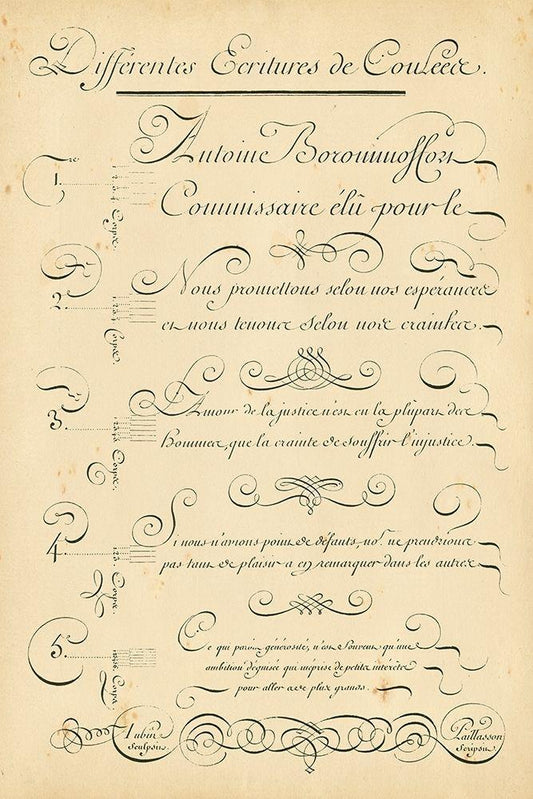 Différentes Ecritures de Coulées.
Antoine Borominossors
1.re
Commissaire élû pour le
Nous promettons selon nos espérances
2.e
et nous tenons selon nos craintes.
L'Amour de la justice n'est en la plûpart des
3.e
hommes, que la crainte de souffrir l'injustice.
Si nous n'avions point de défauts, no.s ne prendrions
4.e
pas tant de plaisir a en remarquer dans les autres
Ce qui paroit générosité, n'est souvent qu'une
5.e
ambition déguisée qui méprise de petits intérêts
pour aller a de plus grands.
Aubin
Sculpsit
Paillasson
Scripsit.